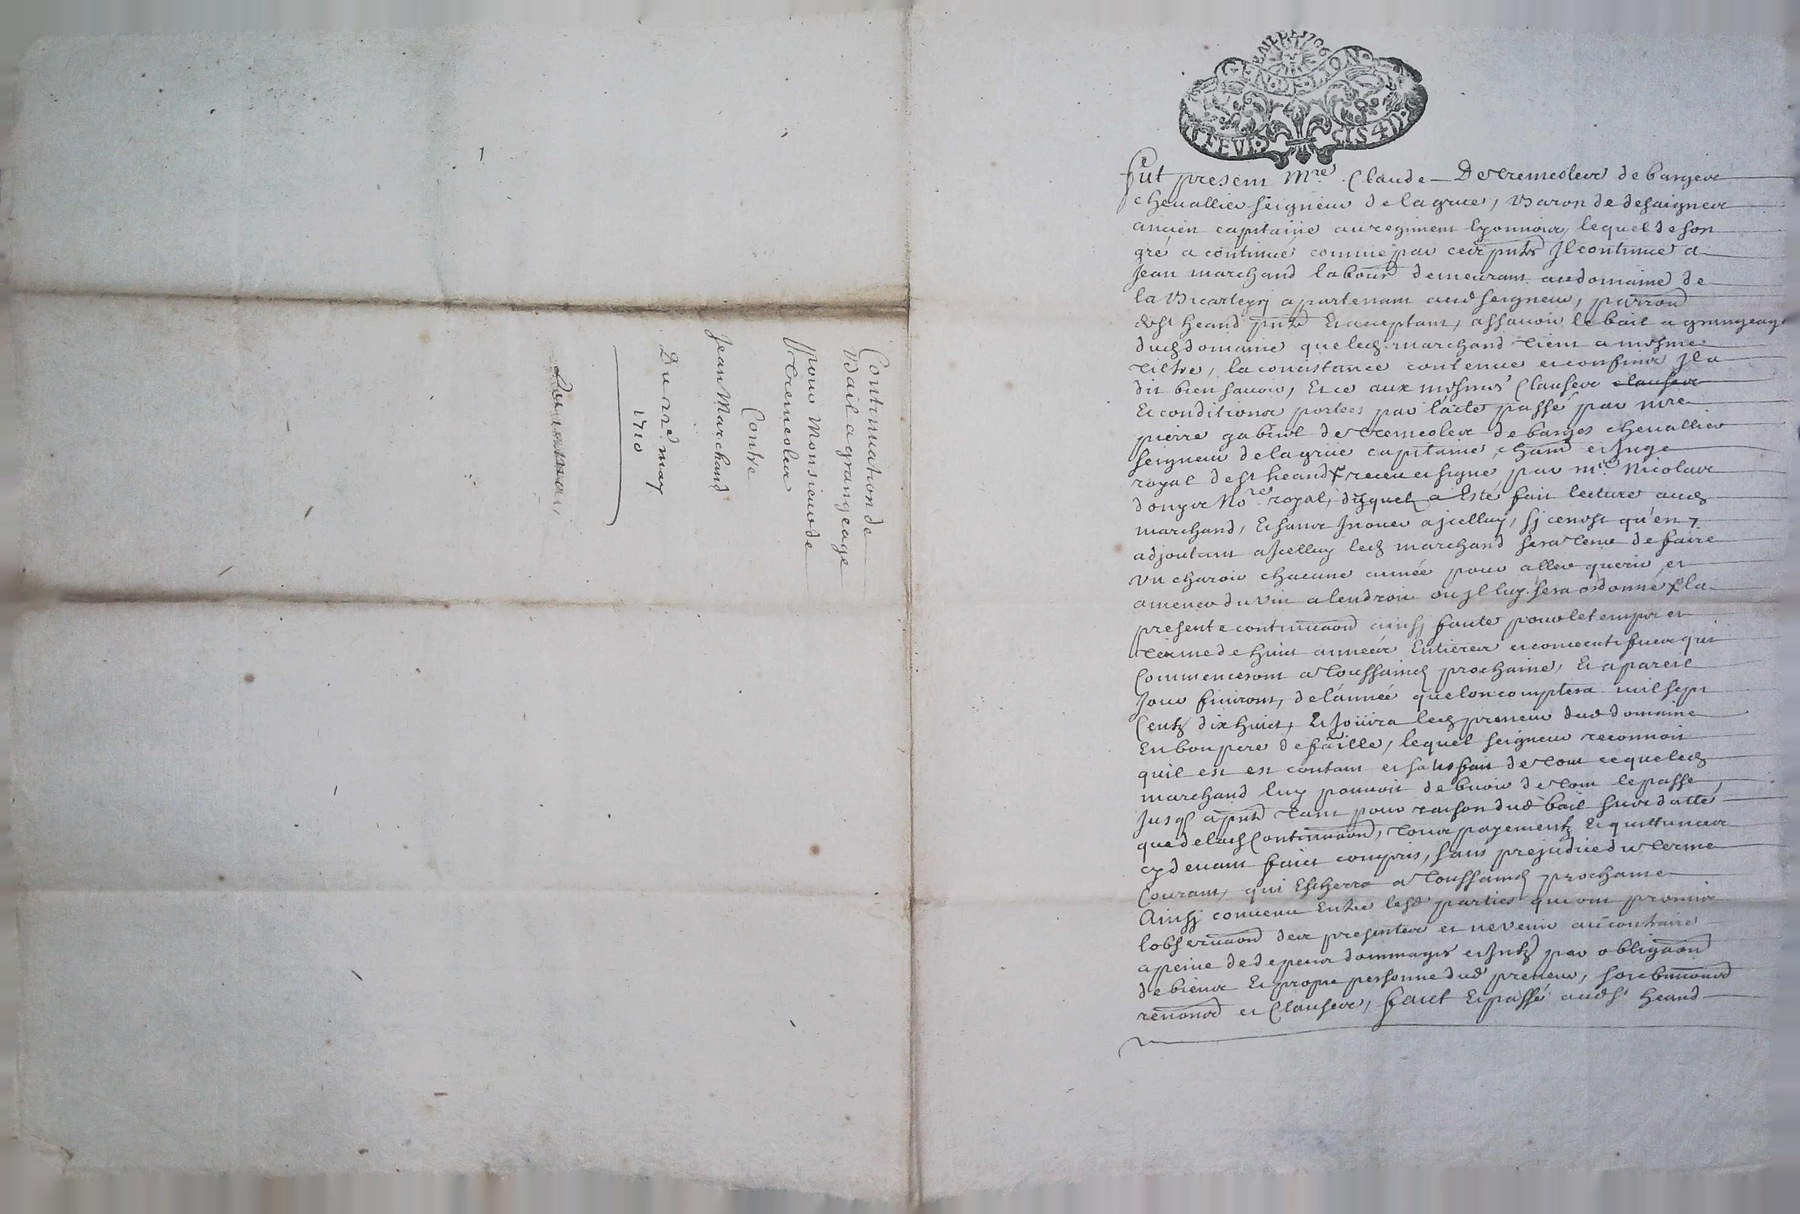 Continuation de
Bail a grangeage
pour Monsieur de
Tremeoleu
Contre
Jean Marchand
Du 22e may
1710
GEN. DE LYON
Fut present Mre Claude De Tremeoleux de bargeux
chevallier seigneur de la grue, Baron de desaigneux
ancien capitaine au regiment lyonnoix, lequel de son
gré a continué comme par cez pntes Jl continue a
Jean marchand labour demeurant au domaine de
la Bicarteyrj apartenant aud seigneur, parroise
de st heand pnt et acceptant, assavoir le bail a grangeage
dud domaine que led marchand tient a mesme
tiltre, la concistance contenue et confins Jl a
dit bien savoir, Et ce aux mesmes clauses clauses
Et conditions portées par l'acte passé par mre
pierre gabriel de tremeoleux de barges chevallier
seigneur de la grue capitaine, cham et Juge
royal de st heand receu et signé par me Nicolas
Nore royal, duquel a Esté fait lecture aud
marchand, Et sans Jnover a jcelluy, sj ce n'est qu'en
adjoutant a Jcelluy led marchand sera tenu de faire
un charoir chacune année pour aller querir et
amener du vin a lendroit ou jl luy sera ordonné la
presente continuaon ainsj faite pour le temps et
terme de huict années Entieres et consecutifves qui
Commenceront a toussainct prochaine, Et a pareil
Jour finiront, de l'année que lon comptera mil sept
Centz dix huict, Et Joüira led preneur dud domaine
En bon pere de faille, lequel seigneur reconnoit
quil est est contant et satisfait de tout ce que led
marchand luy pouvoit debvoir de tout le passé
Jusq a pnt tant pour raison dud bail sus datté
que de lad Continuaon, tous payementz Et quittances
cy devant faict compris, sans prejudice du terme
Courant, qui Escherra a toussainct prochaine
Ainsj convenu Entre lesd parties qui ont promis
lobservaon des presentes et ne venir au contraire
a peine de depens dommages et jntz par obligaon
de biens Et propre personne dud preneur, soubmissions
renons et Clauses, faict Et passé aud st heand